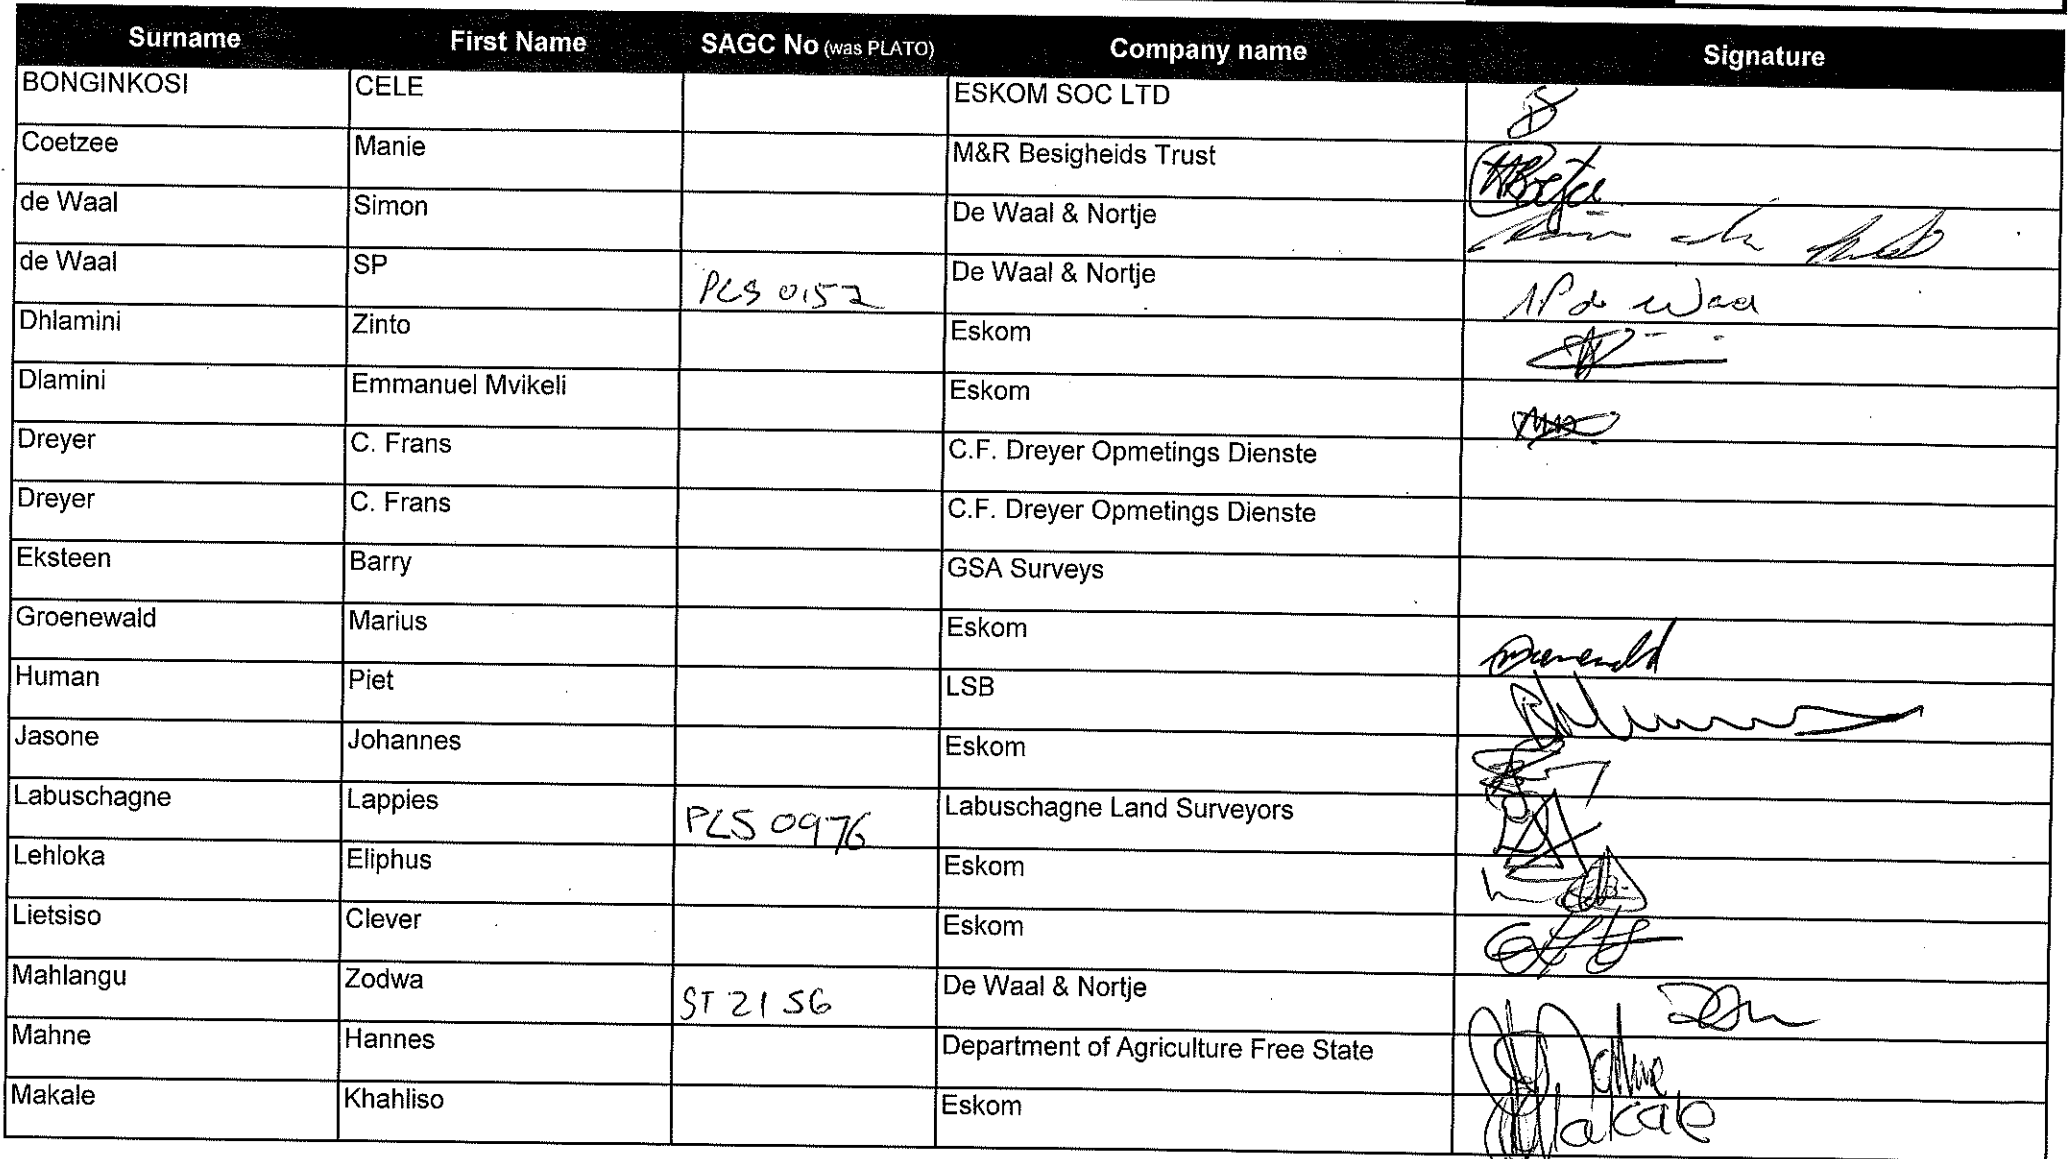 Surname First Name SAGC No (was PLATO) Company name Signature
BONGINKOSI CELE ESKOM SOC LTD
Coetzee Manie M&R Besigheids Trust
de Waal Simon De Waal & Nortje
de Waal SP PLS 0152 De Waal & Nortje SP de Waal
Dhlamini Zinto Eskom
Dlamini Emmanuel Mvikeli Eskom
Dreyer C. Frans C.F. Dreyer Opmetings Dienste
Dreyer C. Frans C.F. Dreyer Opmetings Dienste
Eksteen Barry GSA Surveys
Groenewald Marius Eskom
Human Piet LSB
Jasone Johannes Eskom
Labuschagne Lappies PLS 0976 Labuschagne Land Surveyors
Lehloka Eliphus Eskom
Lietsiso Clever Eskom
Mahlangu Zodwa ST 2156 De Waal & Nortje
Mahne Hannes Department of Agriculture Free State
Makale Khahliso Eskom Makale